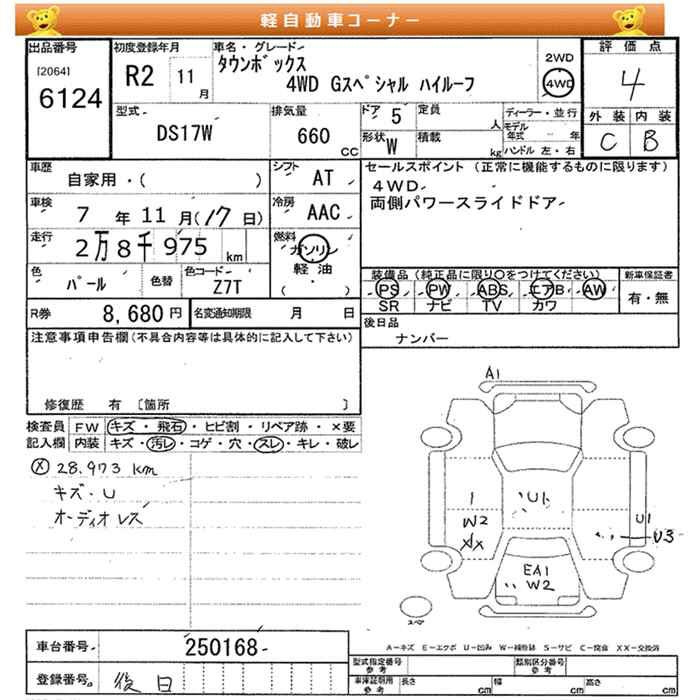 軽自動車コーナー
出品番号 初度登録年月 車名・グレード 評価点
[2064] 6124 R2 11月 タウンボックス 4WD Gスペシャル ハイルーフ 2WD 4WD 4
型式 DS17W 排気量 660 CC ドア 5 定員 人 ディーラー・並行 外装 内装
形状 W 積載 kg モデル年式 年 ハンドル 左・右 C B
車歴 自家用・( ) シフト AT セールスポイント (正常に機能するものに限ります)
車検 7年11月(17日) 冷房 AAC 4WD
両側パワースライドドア
走行 2万8千975km 燃料 ガソリン 軽油 ( ・ )
色 パール 色替 色コード Z7T 装備品 (純正品に限り○をつけてください) 新車保証書
PS PW ABS エアB AW 有・無
SR ナビ TV カワ
R券 8,680円 名変通知期限 月 日 後日品
ナンバー
注意事項申告欄(不具合内容等は具体的に記入して下さい)
修復歴 有 〔箇所 〕
検査員 FW キズ・飛石・ヒビ割・リペア跡・×要
記入欄 内装 キズ・汚レ・コゲ・穴・スレ・キレ・破レ
Ⓧ 28.973 km
キズ・U
オーディオレス
A1
1 U1 U1
W2 U3
XX
EA1
W2
スペア
A-キズ E-エクボ U-凹み W-補修跡 S-サビ C-腐食 XX-交換済
車台番号 250168
登録番号 後日
型式指定番号 参考 類別区分番号 参考
車庫証明用 参考 長さ cm 幅 cm 高さ cm